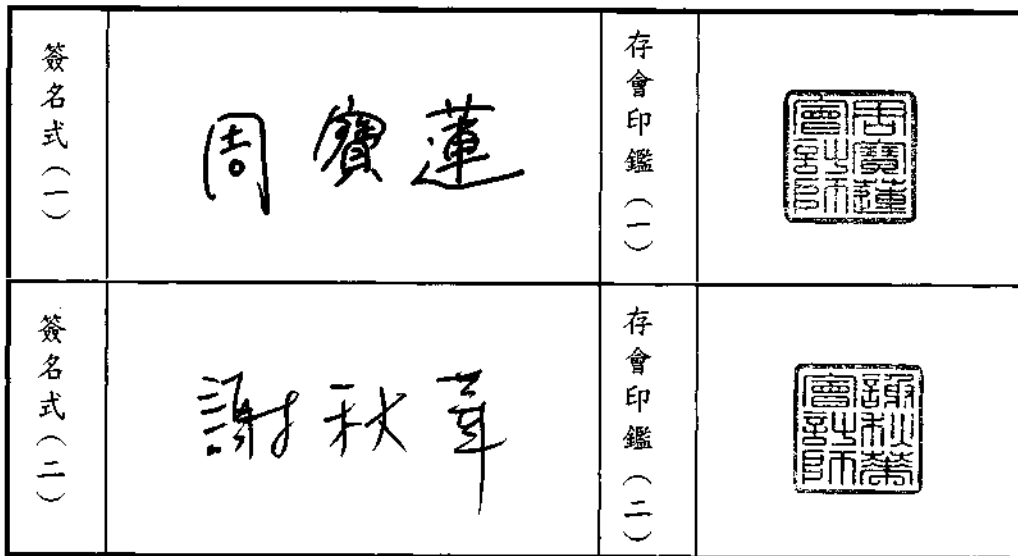 簽名式(一)
周寶蓮
存會印鑑(一)
周寶蓮會計師
簽名式(二)
謝秋華
存會印鑑(二)
謝秋華會計師